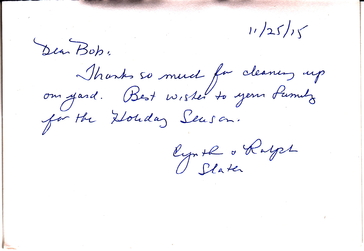 11/25/15
Dear Bob,
Thanks so much for cleaning up
our yard. Best wishes to your family
for the Holiday Season.
Cynth & Ralph
Slater